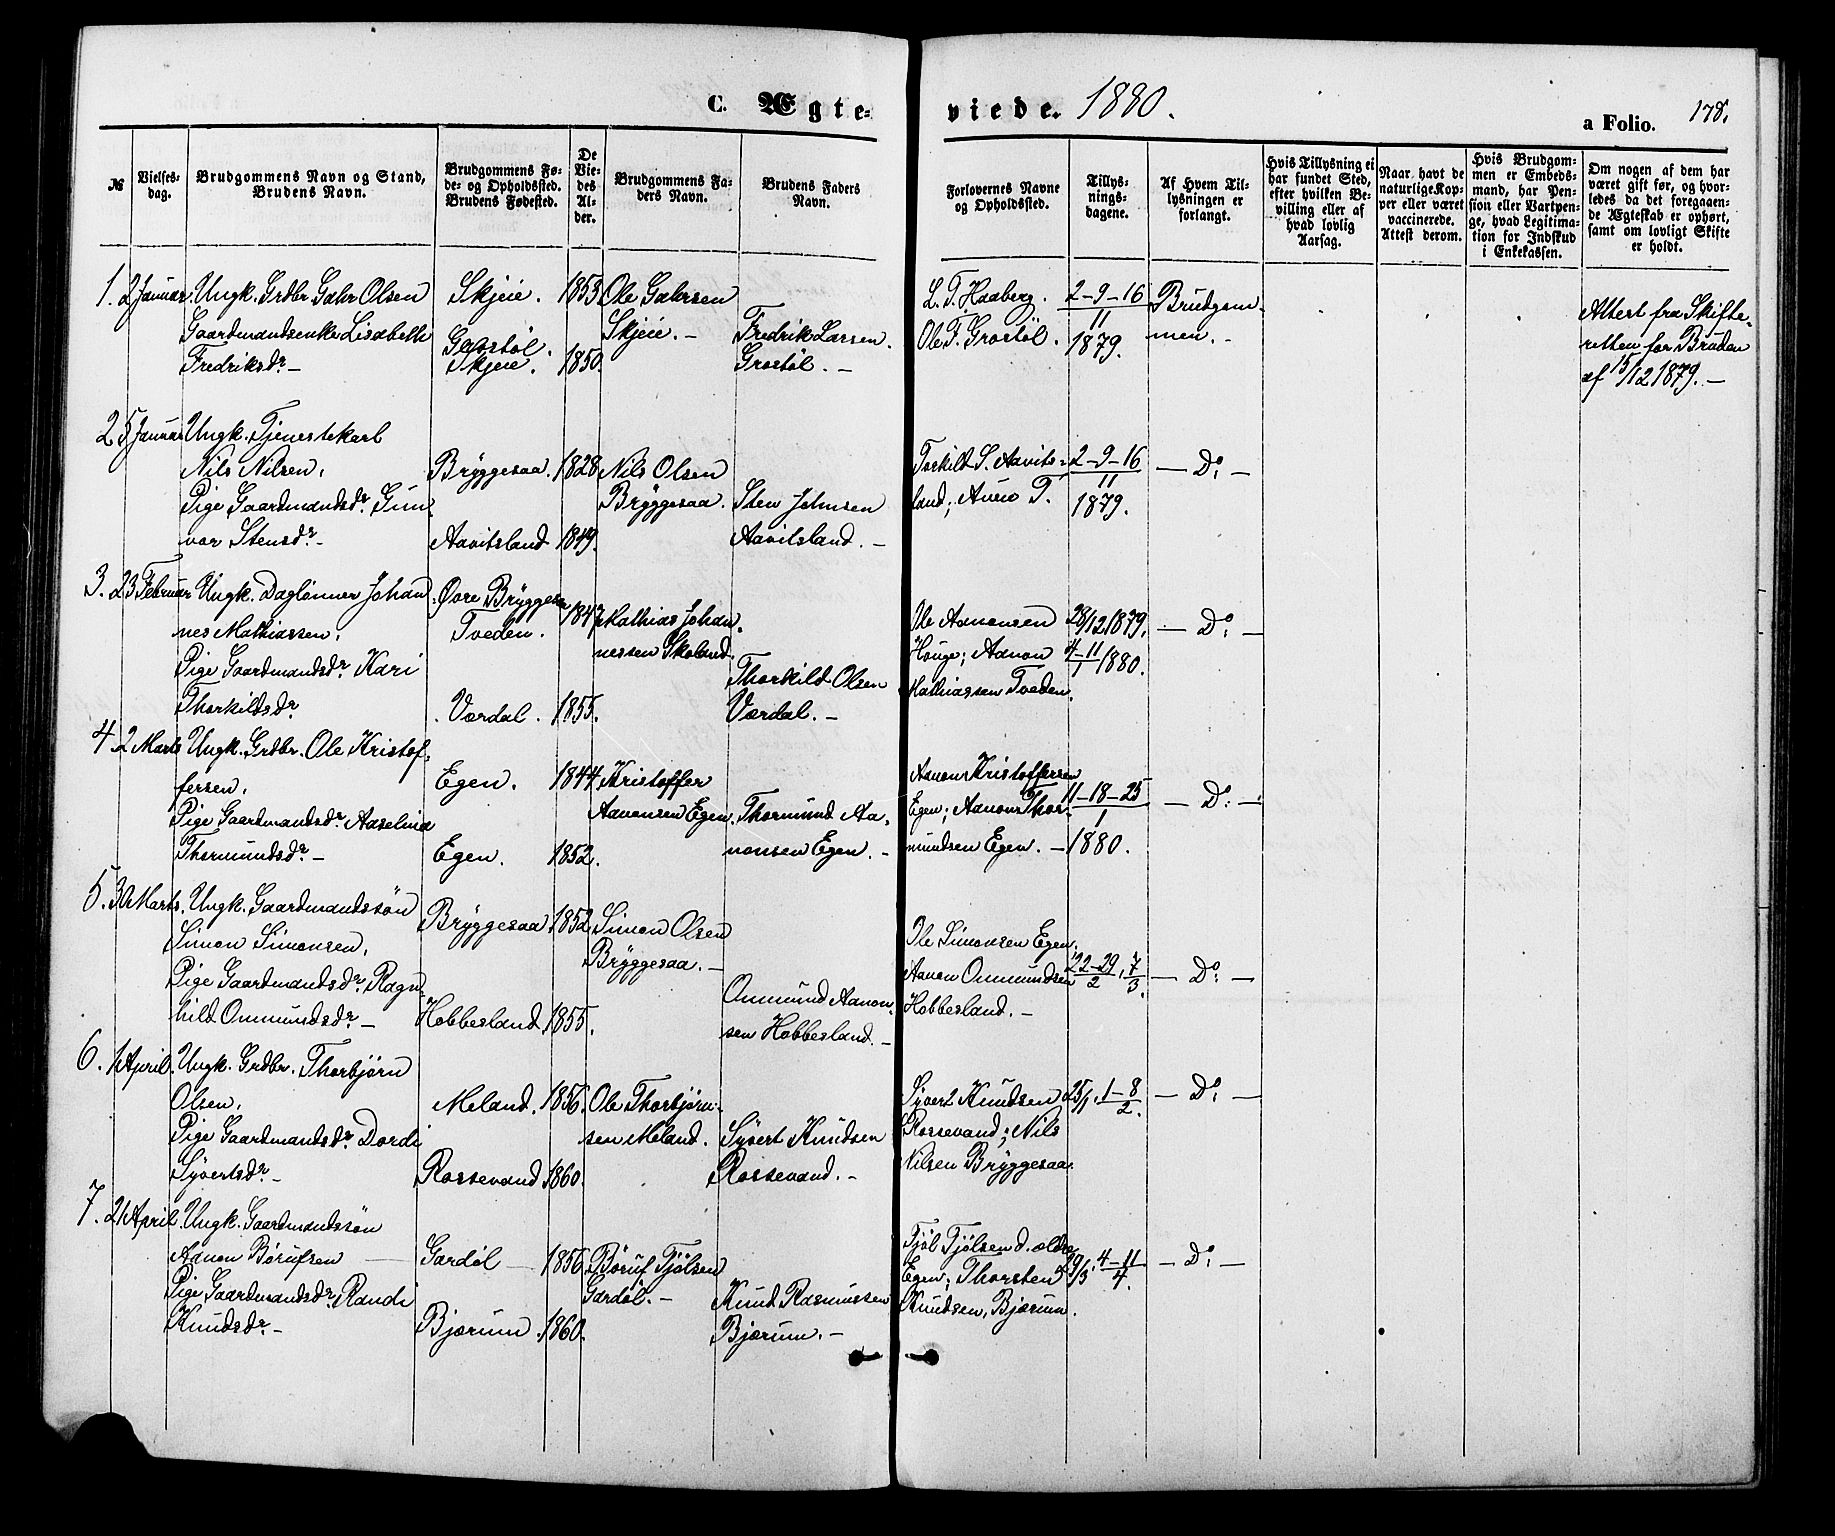 C. Ægte-
viede. 1880.
a Folio. 178.
№
Vielses-
dag.
Brudgommens Navn og Stand,
Brudens Navn.
Brudgommens Fø-
de- og Opholdssted.
Brudens Fødested.
De
Vie-
des
Al-
der.
Brudgommens Fa-
ders Navn.
Brudens Faders
Navn.
Forlovernes Navne
og Opholdssted.
Tillys-
nings-
dagene.
Af Hvem Til-
lysningen er
forlangt.
Hvis Tillysning ei
har fundet Sted,
efter hvilken Be-
villing eller af
hvad lovlig
Aarsag.
Naar havt de
naturlige Kop-
per eller været
vaccinerede.
Attest derom.
Hvis Brudgom-
men er Embeds-
mand, har Pen-
sion eller Vartpen-
ge, hvad Legitima-
tion for Indskud
i Enkekassen.
Om nogen af dem har
været gift før, og hvor-
ledes da det foregaaen-
de Ægteskab er ophørt,
samt om lovligt Skifte
er holdt.
1. 2 Januar. Ungk. Grdbr. Gahr Olsen
Gaardmandsenke Lisabeth
Fredriksdr. –
Skjeie. 1853.
Grostøl.
Skjeie. 1850.
Ole Gahrsen
Skjeie. –
Fredrik Larsen
Grostøl. –
L. T. Haaberg.
Ole F. Grostøl.
2–9–16
11
1879.
Brudgom-
men. –
Attest fra Skifte-
retten for Bruden
af 15/12 1879. –
2. 5 Januar Ungk. Tjenestekarl
Nils Nilsen,
Pige Gaardmandsdr. Gun-
vor Stensdr. –
Bryggesaa. 1828.
Aavitsland 1849.
Nils Olsen
Bryggesaa.
Sten Johnsen
Aavitsland. –
Torkild S. Aavits-
land; Anen T.
2–9–16
11
1879.
— Do: —
3. 23 Februar Ungk. Daglønner Johan-
nes Mathiassen,
Pige Gaardmandsdr. Kari
Thorkildsdr.
Øvre Bryggesa
Tveden. 1847.
Vordal. 1855.
Mathias Johan-
nessen Skoland.
Thorkild Olsen
Vordal. –
Ole Aanonsen
Houge; Aanon
Mathiassen Tveden.
28/12 1879.
4–11
1 1880.
— Do: —
4. 2 Marts Ungk. Grdbr. Ole Kristof-
fersen,
Pige Gaardmandsdr. Aaselina
Thormundsdr. –
Egen. 1844.
Egen. 1852.
Kristoffer
Aanonsen Egen.
Thormund Aa-
nonsen Egen. –
Aanon Kristoffersen
Egen; Aanon Thor-
mundsen Egen. –
11–18–25
1
1880.
— Do: —
5. 30 Marts. Ungk. Gaardmandssøn
Simon Simonsen,
Pige Gaardmandsdr. Ragn-
hild Ommundsdr. –
Bryggesaa 1852.
Hobbesland. 1855.
Simon Olsen
Bryggesaa. –
Ommund Aanon-
sen Hobbesland. –
Ole Simonsen Egen,
Aanon Ommundsen
Hobbesland. –
22–29
2, 7
3.
— Do: —
6. 1 April. Ungk. Grdbr. Thorbjørn
Olsen,
Pige Gaardmandsdr. Dordi
Syvertsdr. –
Meland. 1856.
Rossevand 1860.
Ole Thorbjørn-
sen Meland.
Syvert Knudsen
Rossevand. –
Syvert Knudsen
Rossevand; Nils
Nilsen Bryggesaa.
25/1, 1–8
2.
— Do: —
7. 21 April. Ungk. Gaardmandssøn
Aanon Børufsen
Pige Gaardmandsdr. Randi
Knudsdr. –
Gardøl 1856.
Bjærum. 1860.
Børuf Tjølsen
Gardøl. –
Knud Rasmussen
Bjærum. –
Tjøl Tjølsen d. ældre
Egen; Thorsten
Knudsen, Bjærum.
29/3, 4–11
4.
— Do: —